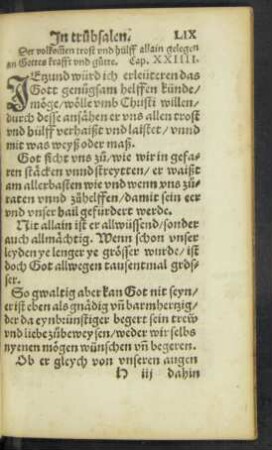 In trübsalen. LIX
Der volkomen trost vnd hülff allain gelegen
an Gottes krafft vnd güte. Cap. XXIIII.
JEtzund würd ich erleüteren das
Gott genügsam helffen künde/
möge/wölle vmb Christi willen/
durch desse ansähen er vns allen trost
vnd hülff verhaißt vnd laistet/ vnnd
mit was weyß oder maß.
Got sicht vns zů/wie wir in gefa-
ren stäcken vnndstreytten/er waißt
am allerbasten wie vnd wenn vns zů-
raten vnnd zůhelffen/damit sein eer
vnd vnser hail gefürdert werde.
Nit allain ist er allwüssend/sonder
auch allmächtig. Wenn schon vnser
leyden ye lenger ye grösser wurde/ist
doch Got allwegen tausentmal grös-
ser.
So gwaltig aber kan Got nit seyn/
er ist eben als gnädig vñ barmhertzig/
der da eynbrünstiger begert sein trew
vnd liebe zůbeweysen/weder wir selbs
nyenen mögen wünschen vñ begeren.
Ob er gleych von vnseren augen
H iij dahin